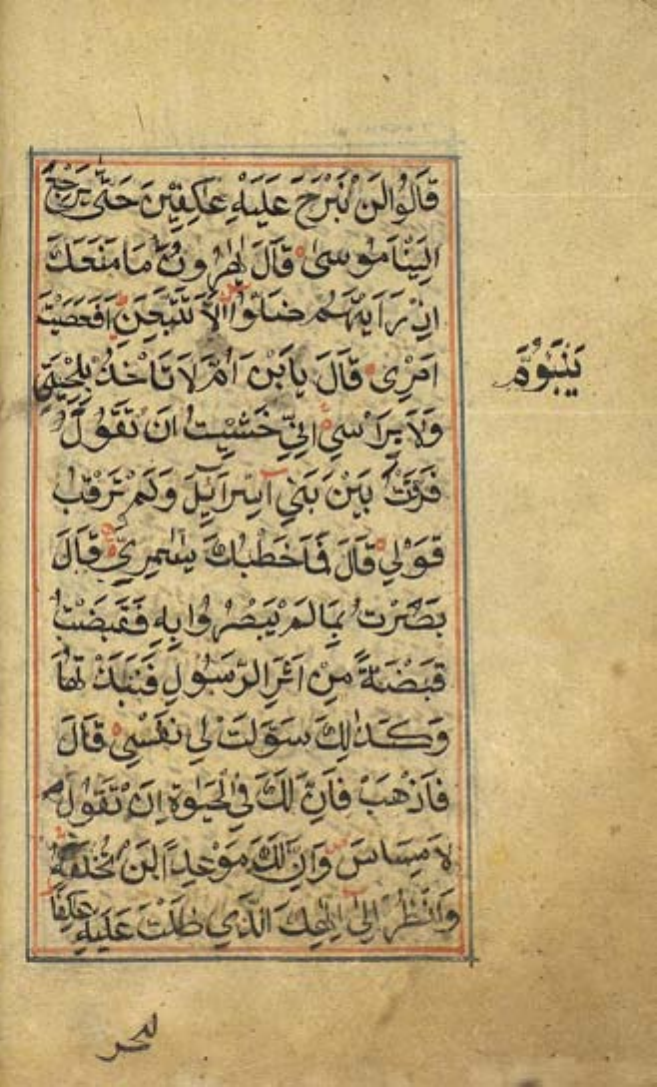 قَالُوا لَنْ نَبْرَحَ عَلَيْهِ عٰكِفِيْنَ حَتّٰى يَرْجِعَ
اِلَيْنَا مُوسٰى قَالَ يٰهٰرُونُ مَا مَنَعَكَ
اِذْ رَاَيْتَهُمْ ضَلُّوا اَلَّا تَتَّبِعَنِ اَفَعَصَيْتَ
اَمْرِى قَالَ يَابْنَ اُمَّ لَا تَاْخُذْ بِلِحْيَتِي
وَلَا بِرَاْسِي اِنِّي خَشِيتُ اَنْ تَقُولَ
فَرَّقْتَ بَيْنَ بَنِي اِسْرَايِٕلَ وَلَمْ تَرْقُبْ
قَوْلِي قَالَ فَمَا خَطْبُكَ يٰسٰمِرِيُّ قَالَ
بَصُرْتُ بِمَا لَمْ يَبْصُرُوا بِهِ فَقَبَضْتُ
قَبْضَةً مِنْ اَثَرِ الرَّسُولِ فَنَبَذْتُهَا
وَكَذٰلِكَ سَوَّلَتْ لِي نَفْسِي قَالَ
فَاذْهَبْ فَاِنَّ لَكَ فِي الْحَيٰوةِ اَنْ تَقُولَ
لَا مِسَاسَ وَاِنَّ لَكَ مَوْعِدًا لَنْ تُخْلَفَهُ
وَانْظُرْ اِلٰى اِلٰهِكَ الَّذِي ظَلْتَ عَلَيْهِ عَاكِفًا
يَبْنَؤُمَّ
لنحر